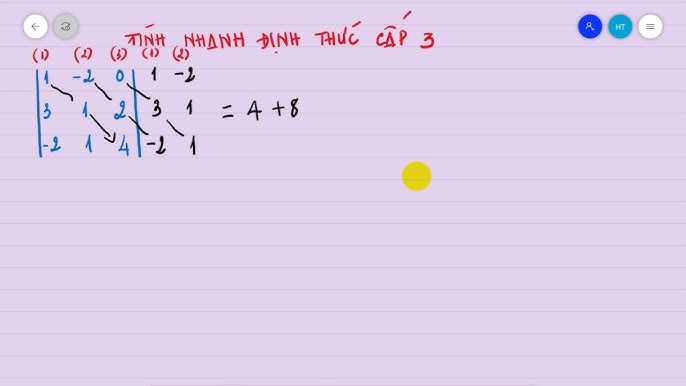 TÍNH NHANH ĐỊNH THỨC CẤP 3
HT
(1) (2) (3) (1) (2)
1 -2 0 1 -2
3 1 2 3 1 = 4 + 8
-2 1 4 -2 1